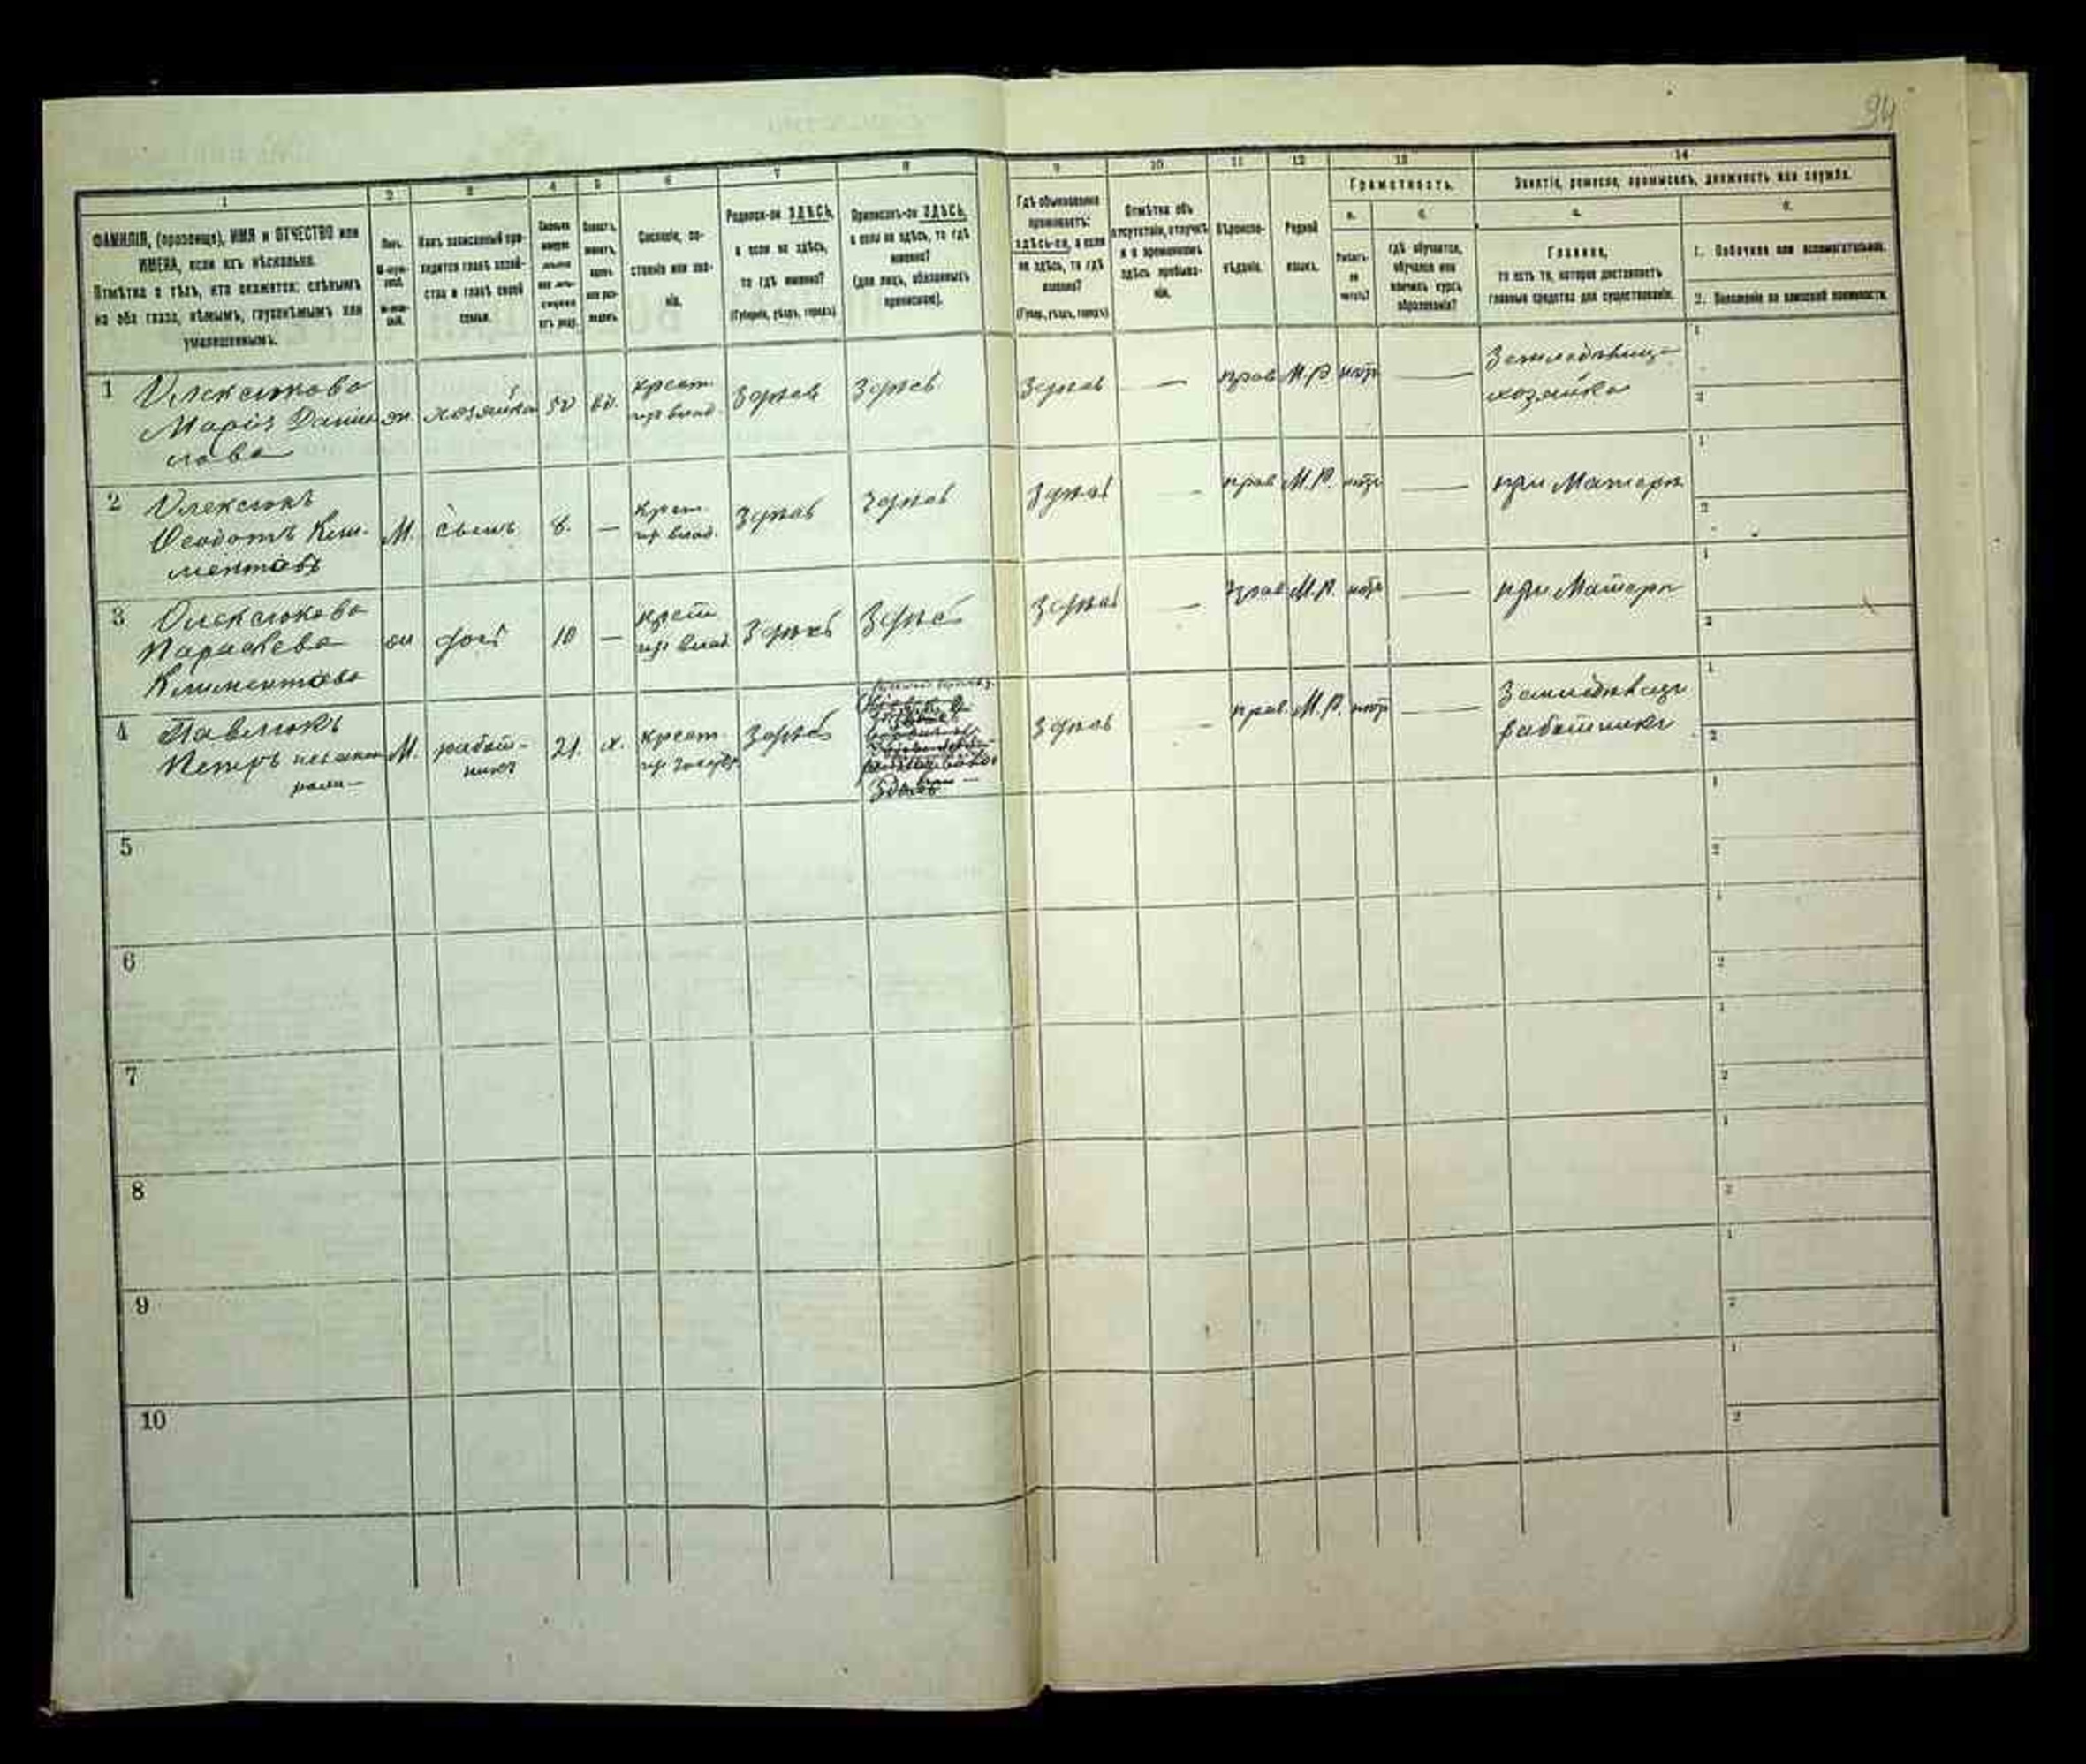 94
1 2 3 4 5 6 7 8 9 10 11 12 13 14
ФАМИЛІЯ, (прозвище), ИМЯ и ОТЧЕСТВО или
ИМЕНА, если ихъ нѣсколько.
Отмѣтка о тѣхъ, кто окажется: слѣпымъ
на оба глаза, нѣмымъ, глухонѣмымъ или
умалишеннымъ.
Полъ.
М-муж-
ской.
Ж-жен-
скій.
Какъ записанный при-
ходится главѣ хозяй-
ства и главѣ своей
семьи.
Сколько
отъ роду.
Холостъ,
женатъ,
вдовъ
или раз-
веденъ.
Сословіе, со-
стояніе или зва-
ніе.
Родился-ли ЗДѢСЬ,
а если не здѣсь,
то гдѣ именно?
(Губернія, уѣздъ, городъ)
Приписанъ-ли ЗДѢСЬ,
а если не здѣсь, то гдѣ
именно?
(для лицъ, обязанныхъ
припискою).
Гдѣ обыкновенно
проживаетъ:
здѣсь-ли, а если
не здѣсь, то гдѣ
именно?
(Губер., уѣздъ, городъ)
Отмѣтка объ
отсутствіи, отлучкѣ
и о временномъ
здѣсь пребыва-
ніи.
Вѣроиспо-
вѣданіе.
Родной
языкъ.
Грамотность.
а.
Умѣетъ-
ли
читать?
б.
гдѣ обучается,
обучался или
кончилъ курсъ
образованія?
Занятіе, ремесло, промыселъ, должность или служба.
а.
Главное,
то есть то, которое доставляетъ
главныя средства для существованія.
б.
1. Побочное или вспомогательное.
2. Положеніе по воинской повинности.
1 Олексюкова
Марія Дани-
лова
ж. хозяйка 50 вд. крест. здѣсь здѣсь здѣсь — прав М.Р нѣтъ —
хозяйка
1
2
2 Олексюкъ
Ѳеодотъ Кли-
ментовъ
М. сынъ 8. — крест. здѣсь здѣсь здѣсь — прав М.Р. нѣтъ — при Матери
1
2
3 Олексюкова
Параскева
Климентова
доч 10 — крест здѣсь здѣсь здѣсь — прав М.Р. нѣтъ — при Матери
1
2
4 Павлюкъ
Петръ
М. работ-
никъ
21. х. крест здѣсь здѣсь — прав. М.Р. нѣтъ —
работникъ
1
2
5
1
2
6
1
2
7
1
2
8
1
2
9
1
2
10
1
2